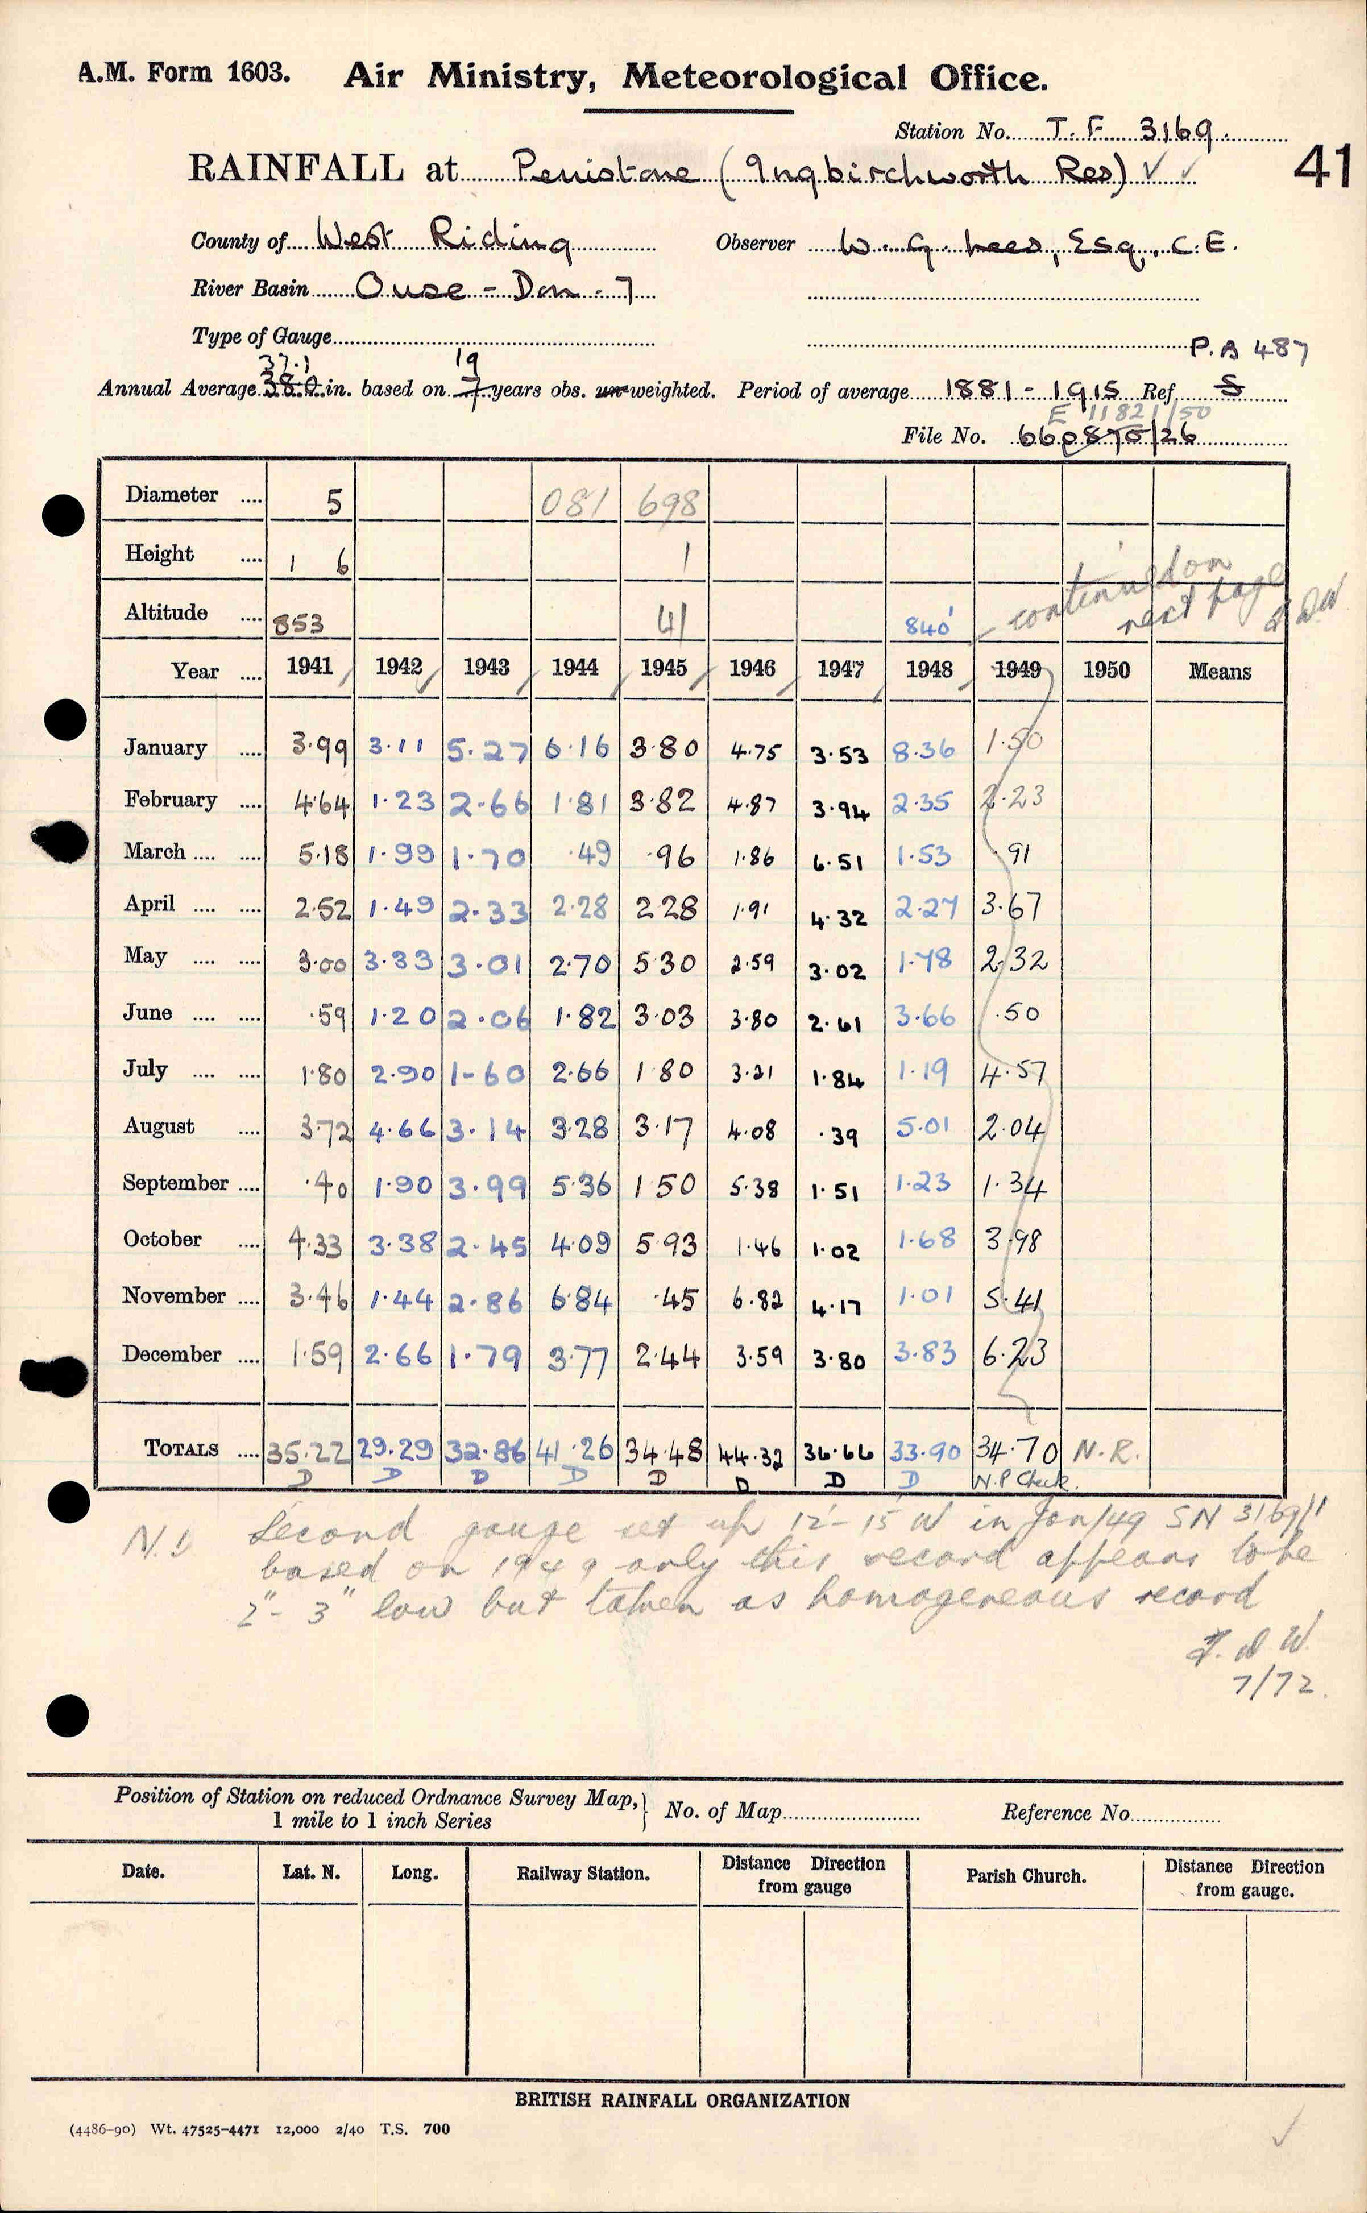 A.M. Form 1603. Air Ministry, Meteorological Office.
Station No. T. F. 3169.
RAINFALL at Penistone (Ingbirchworth Res) ✓ ✓
41
County of West Riding Observer W. G. Lees, Esq., C.E.
River Basin Ouse - Don - 7
Type of Gauge
P.A 487
37.1 19
Annual Average 38.0 in. based on 7 years obs. un-weighted. Period of average 1881 - 1915 Ref S
E 11821/50
File No. 660870/26
Diameter .... 5 081 698
Height .... 1 6 1
continued on
next page
Altitude .... 853 41 840'
Year .... 1941 1942 1943 1944 1945 1946 1947 1948 1949 1950 Means
January .... 3.99 3.11 5.27 6.16 3.80 4.75 3.53 8.36 1.50
February .... 4.64 1.23 2.66 1.81 3.82 4.87 3.94 2.35 2.23
March .... .... 5.18 1.99 1.70 .49 .96 1.86 6.51 1.53 .91
April .... .... 2.52 1.49 2.33 2.28 2.28 1.91 4.32 2.27 3.67
May .... .... 3.00 3.33 3.01 2.70 5.30 2.59 3.02 1.78 2.32
June .... .... .59 1.20 2.06 1.82 3.03 3.80 2.61 3.66 .50
July .... .... 1.80 2.90 1-60 2.66 1.80 3.21 1.84 1.19 4.57
August .... 3.72 4.66 3.14 3.28 3.17 4.08 .39 5.01 2.04
September .... .40 1.90 3.99 5.36 1.50 5.38 1.51 1.23 1.34
October .... 4.33 3.38 2.45 4.09 5.93 1.46 1.02 1.68 3.98
November .... 3.46 1.44 2.86 6.84 .45 6.82 4.17 1.01 5.41
December .... 1.59 2.66 1.79 3.77 2.44 3.59 3.80 3.83 6.23
TOTALS .... 35.22 29.29 32.86 41.26 34.48 44.32 36.66 33.90 34.70 N.R.
D D D D D D D D N.P Check.
Second gauge set up 12'-15' W in Jan/49 SN 3169/1
based on 1949 only this record appears to be
2"- 3" low but taken as homogeneous record
7/72.
Position of Station on reduced Ordnance Survey Map,
1 mile to 1 inch Series } No. of Map Reference No.
Date. Lat. N. Long. Railway Station. Distance from gauge Direction Parish Church. Distance Direction from gauge.
BRITISH RAINFALL ORGANIZATION
(4486-90) Wt. 47525-4471 12,000 2/40 T.S. 700